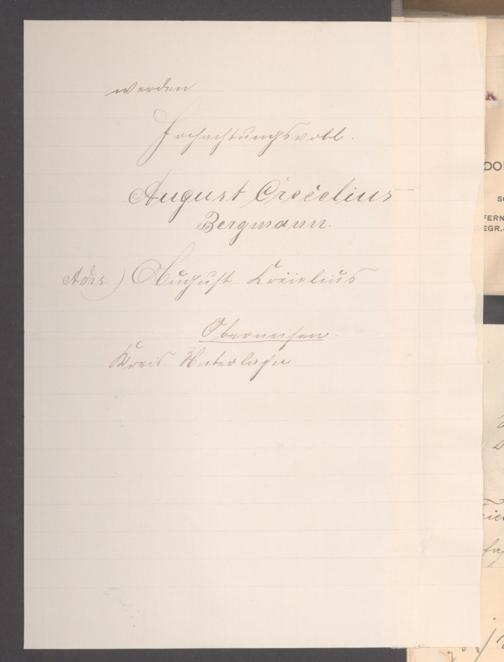 werden
Hochachtungsvoll.
August Crecelius
Bergmann.
Adr.) August Krecelius
Oberneisen.
Kreis Unterlahn